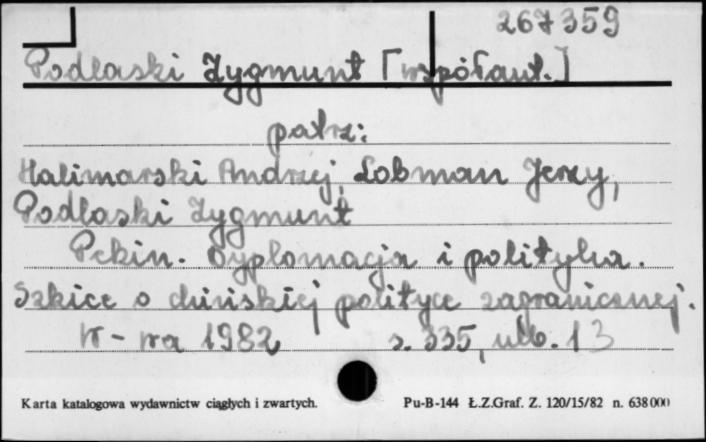 267359
Podlaski Zygmunt [współaut.]
patrz:
Halimarski Andrzej, Lobman Jerzy,
Podlaski Zygmunt
Pekin. Dyplomacja i polityka.
Szkice o chińskiej polityce zagranicznej.
W-wa 1982 s. 335, nlb. 13
Karta katalogowa wydawnictw ciągłych i zwartych. Pu-B-144 Ł.Z.Graf. Z. 120/15/82 n. 638000